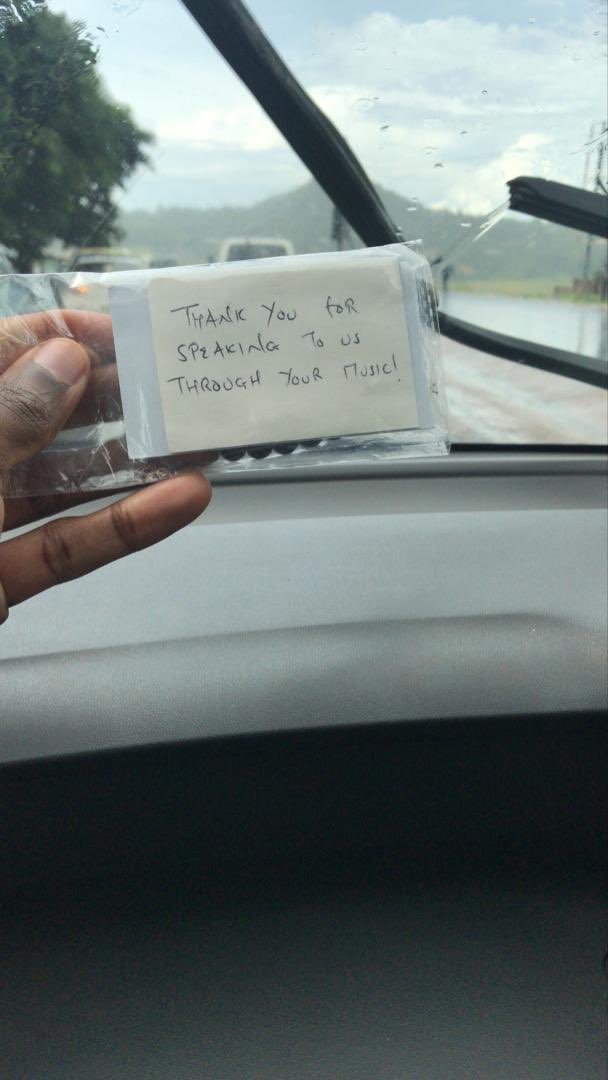 THANK YOU FOR
SPEAKING TO US
THROUGH YOUR MUSIC!